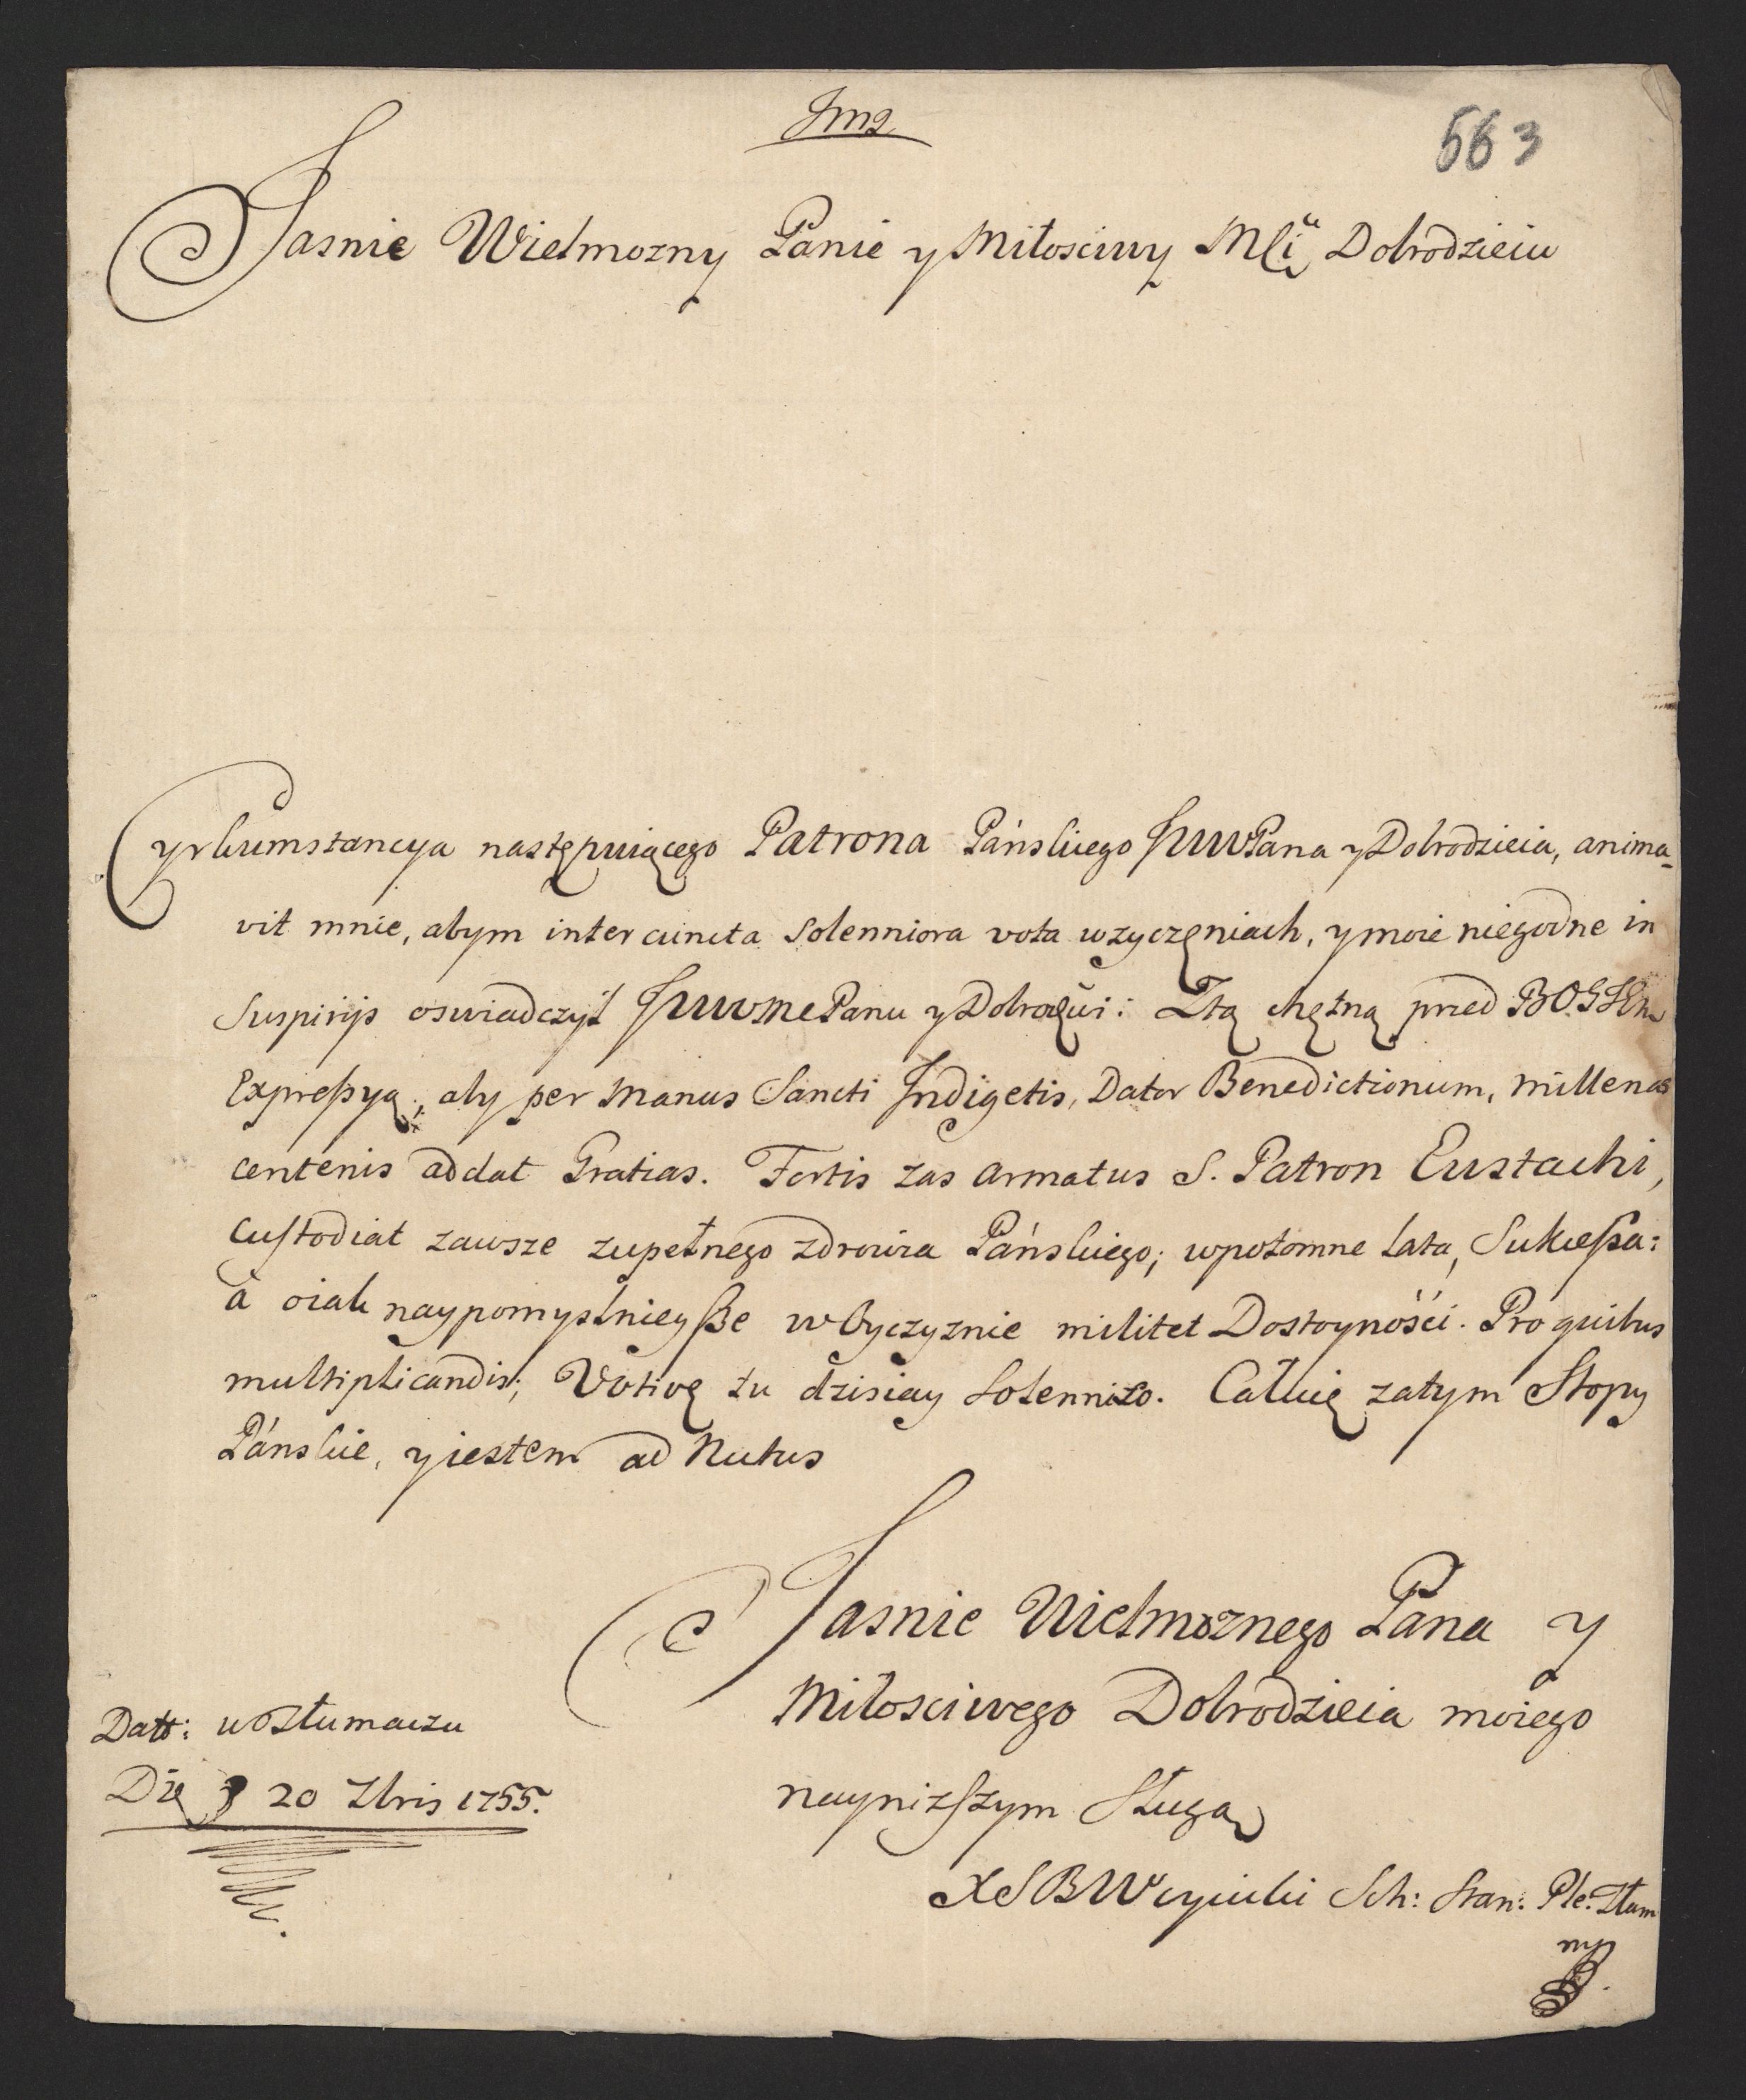 Jmz
563
Jasnie Wielmozny Panie y Miłosciwy Mci Dobrodzieiu
Cyrkumstancya następuiącego Patrona Pańskiego JWWPana y Dobrodzieia, anima-
vit mnie, abym inter cuncta solenniora vota wzyczęniach, y moie niegodne in
Suspirijs oswiadczył JWWMePanu y Dobrodźiei: Ztą chętną przed BOGIEm
Expressyą, aby per Manus Sancti Indigetis, Dator Benedictionum, millenas
centenis addat Gratias. Fortis zas armatus S. Patron Eustachi,
Custodiat zawsze zupełnego zdrowia Pańskiego; wpotomne Lata, Sukcessa:
à oiak naypomyslnieysze w Oyczyznie militet Dostoyności. Pro quibus
multiplicandis; Votivę tu dzisiay Solennizo. Całuię zatym Stopy
Pánskie, y iestem ad Nutus
Jasnie Wielmoznego Pana y
Miłosciwego Dobrodzieia moiego
naynizszym Sługą
Datt: w Tłumaczu
Die 20 7bris 1755.
XSB Sch: Stan: Ple: Tłum
mp